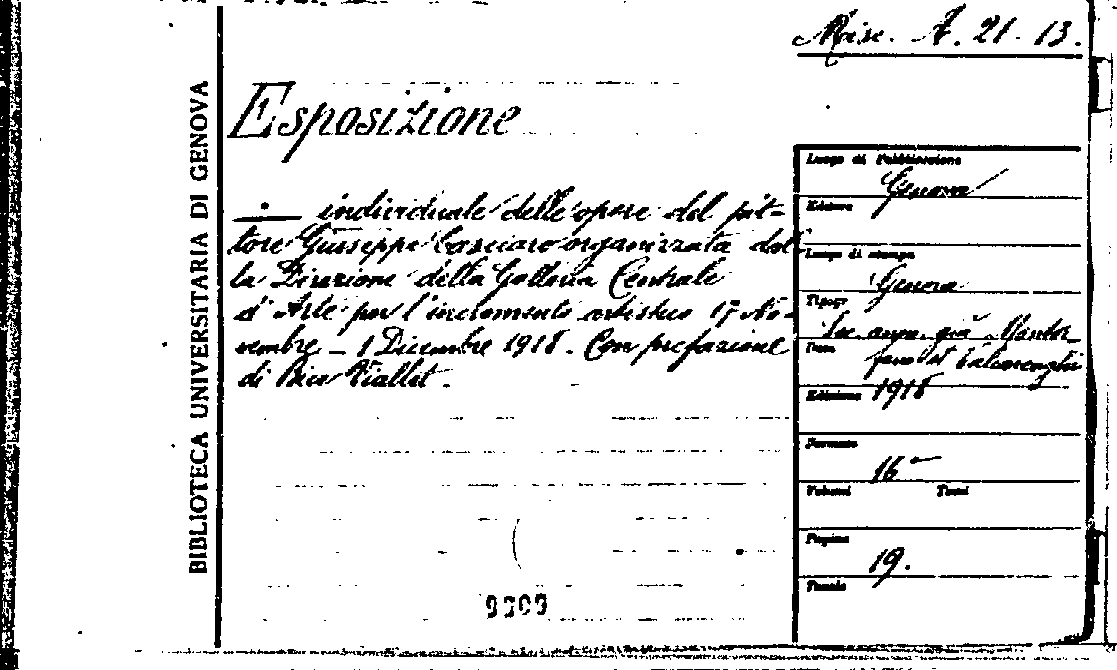 Misc. A. 21. 13.
BIBLIOTECA UNIVERSITARIA DI GENOVA
Esposizione
— individuale delle opere del pit-
tore Giuseppe Casciaro organizzata dal-
la Direzione della Galleria Centrale
d'Arte per l'incremento artistico 17 No-
vembre – 1 Dicembre 1918. Con prefazione
di Bice Viallet.
Luogo di Pubblicazione
Genova
Editore
Luogo di stampa
Genova
Tipogr.
Soc. anon. già
Data
1918
Edizione
Formato
16°
Volumi Tomi
Pagine
19.
Tavole